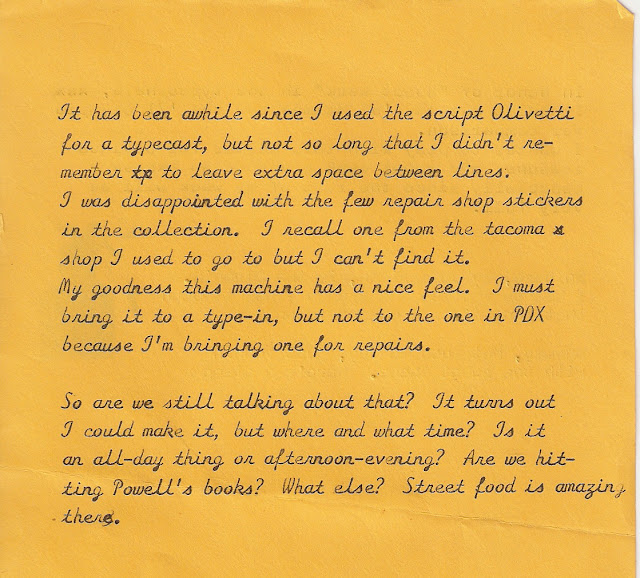 It has been awhile since I used the script Olivetti
for a typecast, but not so long that I didn't re-
member to to leave extra space between lines.
I was disappointed with the few repair shop stickers
in the collection.  I recall one from the tacoma s
shop I used to go to but I can't find it.
My goodness this machine has a nice feel.  I must
bring it to a type-in, but not to the one in PDX
because I'm bringing one for repairs.

So are we still talking about that?  It turns out
I could make it, but where and what time?  Is it
an all-day thing or afternoon-evening?  Are we hit-
ting Powell's books?  What else?  Street food is amazing
there.